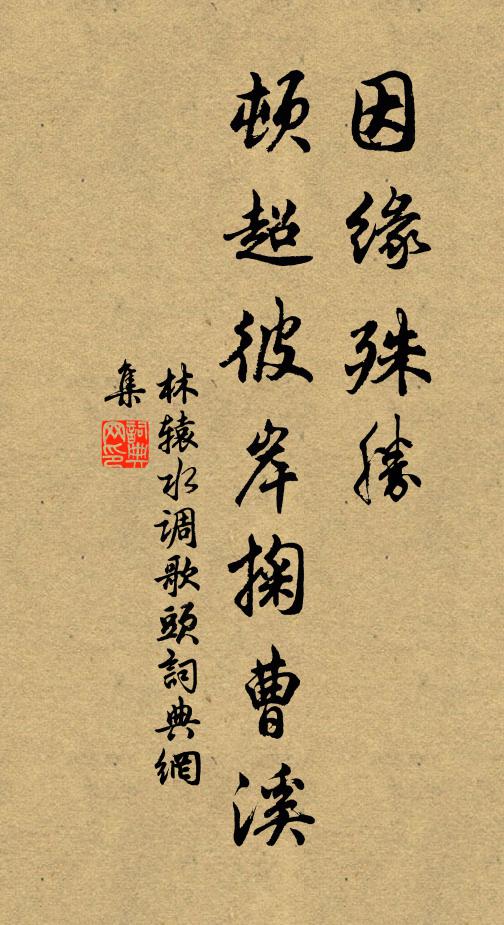 因缘殊勝
頓超彼岸掬曹溪
林辕水调歌頭詞典網
集
詞典
网印